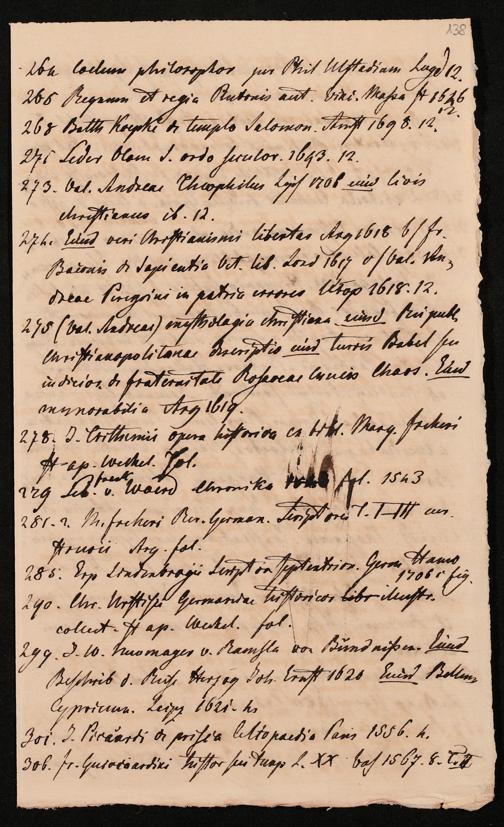 138
264 Coelum philosophor per Phil Ulstadium Lugd 12.
265 Regnum et regia Plutonis aut. Dini. Massa ff 1626
12.
268 Balth Koepke de templo Salomon. Amst 1698. 12.
271 Seder Olam s. ordo seculor. 1693. 12.
273. Val. Andreae Theophilus Lpz 1706 eiusd civis
christianus ib. 12.
274. Eiusd veri Christianismi libertas Arg 1618 b/ fr.
Baconis de Sapientia Vet. lib. Lond 1617 c/ Val. An,
dreae Peregrini in patria errores Utop 1618. 12.
275 (Val. Andreae) mythologia christiana eiusd Reipubl
Christianopolitanae descriptio eiusd turris Babel seu
iudicior. de fraternitate Rosaceae Crucis Chaos. Eiusd
memorabilia Arg 1619.
278. J. Trithemii opera historica ex bibl. Marq. freheri
ff ap. Wechel. fol.
279 Seb. franck v. Woerd Chronika fol. 1543
281-2. M. freheri Rer. German. Scriptores T. I-III cur.
Struvii Arg. fol.
285. Erp Lindenbrogii Scriptor Septentrion. Germ Hamb
1706 c fig.
290. Chr. Urstisii Germaniae historicor illustr.
collect. ff ap. Wechel. fol.
299. J. W. Neumayer v. Ramssla von Bündnißen. Eiusd
Beschreib d. Reise Herzog Joh. Ernst 1620 Eiusd Bellum
Cyprium. Leipz 1621. 4
301. J. Picardi de prisca Celtopaedia Paris 1556. 4.
306. fr. Guicciardini histor sui temp L. XX Bas 1567. 8. T. II